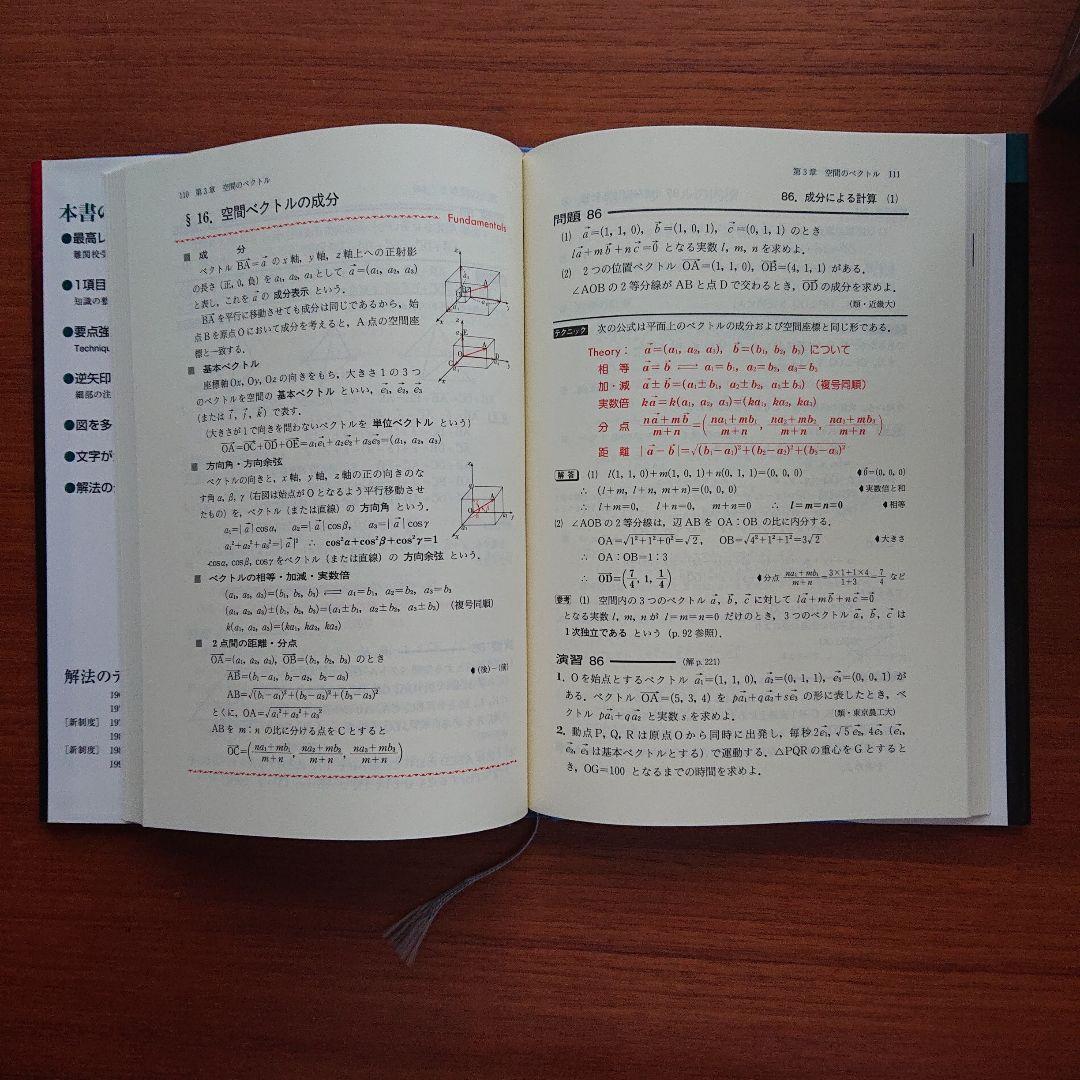 本書の
●最高レ
難関校引
●1項目
知識の整
●要点強
Techniqu
●逆矢印
細部の注
●図を多
●文字が
●解法の
解法のテ
[新制度]
[新制度]
110 第3章 空間のベクトル
§16. 空間ベクトルの成分
Fundamentals
■ 成 分
ベクトル BA→=a→ の x 軸, y 軸, z 軸上への正射影
の長さ (正, 0, 負) を a₁, a₂, a₃ として a→=(a₁, a₂, a₃)
と表し, これを a→ の 成分表示 という.
BA→ を平行に移動させても成分は同じであるから, 始
点 B を原点 O において成分を考えると, A 点の空間座
標と一致する.
■ 基本ベクトル
座標軸 Ox, Oy, Oz の向きをもち, 大きさ 1 の 3 つ
のベクトルを空間の 基本ベクトル といい, e₁→, e₂→, e₃→
(または i→, j→, k→) で表す.
(大きさが 1 で向きを問わないベクトルを 単位ベクトル という)
OA→=OC→+OD→+OE→=a₁e₁→+a₂e₂→+a₃e₃→=(a₁, a₂, a₃)
■ 方向角・方向余弦
ベクトルの向きと, x 軸, y 軸, z 軸の正の向きのな
す角 α, β, γ (右図は始点が O となるよう平行移動させ
たもの) を, ベクトル (または直線) の 方向角 という.
a₁=|a→|cosα, a₂=|a→|cosβ, a₃=|a→|cosγ
a₁²+a₂²+a₃²=|a→|² ∴ cos²α+cos²β+cos²γ=1
cosα, cosβ, cosγ をベクトル (または直線) の 方向余弦 という.
■ ベクトルの相等・加減・実数倍
(a₁, a₂, a₃)=(b₁, b₂, b₃) ⇌ a₁=b₁, a₂=b₂, a₃=b₃
(a₁, a₂, a₃)±(b₁, b₂, b₃)=(a₁±b₁, a₂±b₂, a₃±b₃) (複号同順)
k(a₁, a₂, a₃)=(ka₁, ka₂, ka₃)
■ 2 点間の距離・分点
OA→=(a₁, a₂, a₃), OB→=(b₁, b₂, b₃) のとき
AB→=(b₁-a₁, b₂-a₂, b₃-a₃) ◀(後)-(前)
AB=√((b₁-a₁)²+(b₂-a₂)²+(b₃-a₃)²)
とくに, OA=√(a₁²+a₂²+a₃²)
AB を m:n の比に分ける点を C とすると
OC→=((na₁+mb₁)/(m+n), (na₂+mb₂)/(m+n), (na₃+mb₃)/(m+n))
第3章 空間のベクトル 111
86. 成分による計算 (1)
問題 86
(1) a→=(1, 1, 0), b→=(1, 0, 1), c→=(0, 1, 1) のとき
la→+mb→+nc→=0→ となる実数 l, m, n を求めよ.
(2) 2 つの位置ベクトル OA→=(1, 1, 0), OB→=(4, 1, 1) がある.
∠AOB の 2 等分線が AB と点 D で交わるとき, OD→ の成分を求めよ.
(類・近畿大)
テクニック 次の公式は平面上のベクトルの成分および空間座標と同じ形である.
Theory: a→=(a₁, a₂, a₃), b→=(b₁, b₂, b₃) について
相 等 a→=b→ ⇌ a₁=b₁, a₂=b₂, a₃=b₃
加・減 a→±b→=(a₁±b₁, a₂±b₂, a₃±b₃) (複号同順)
実数倍 ka→=k(a₁, a₂, a₃)=(ka₁, ka₂, ka₃)
分 点 (na→+mb→)/(m+n)=((na₁+mb₁)/(m+n), (na₂+mb₂)/(m+n), (na₃+mb₃)/(m+n))
距 離 |a→-b→|=√((b₁-a₁)²+(b₂-a₂)²+(b₃-a₃)²)
解答 (1) l(1, 1, 0)+m(1, 0, 1)+n(0, 1, 1)=(0, 0, 0) ◀0→=(0, 0, 0)
∴ (l+m, l+n, m+n)=(0, 0, 0) ◀実数倍と和
∴ l+m=0, l+n=0, m+n=0 ∴ l=m=n=0 ◀相等
(2) ∠AOB の 2 等分線は, 辺 AB を OA:OB の比に内分する.
OA=√(1²+1²+0²)=√2, OB=√(4²+1²+1²)=3√2 ◀大きさ
∴ OA:OB=1:3
∴ OD→=(7/4, 1, 1/4) ◀分点 (na₁+mb₁)/(m+n)=(3×1+1×4)/(1+3)=7/4 など
参考 (1) 空間内の 3 つのベクトル a→, b→, c→ に対して la→+mb→+nc→=0→
となる実数 l, m, n が l=m=n=0 だけのとき, 3 つのベクトル a→, b→, c→ は
1 次独立である という (p.92 参照).
演習 86 (解 p.221)
1. O を始点とするベクトル a₁→=(1, 1, 0), a₂→=(0, 1, 1), e₃→=(0, 0, 1) が
ある. ベクトル OA→=(5, 3, 4) を pa₁→+qa₂→+se₃→ の形に表したとき, ベ
クトル pa₁→+qa₂→ と実数 s を求めよ. (類・東京農工大)
2. 動点 P, Q, R は原点 O から同時に出発し, 毎秒 2e₁→, √5e₂→, 4e₃→ (e₁→,
e₂→, e₃→ は基本ベクトルとする) で運動する. △PQR の重心を G とすると
き, OG=100 となるまでの時間を求めよ.